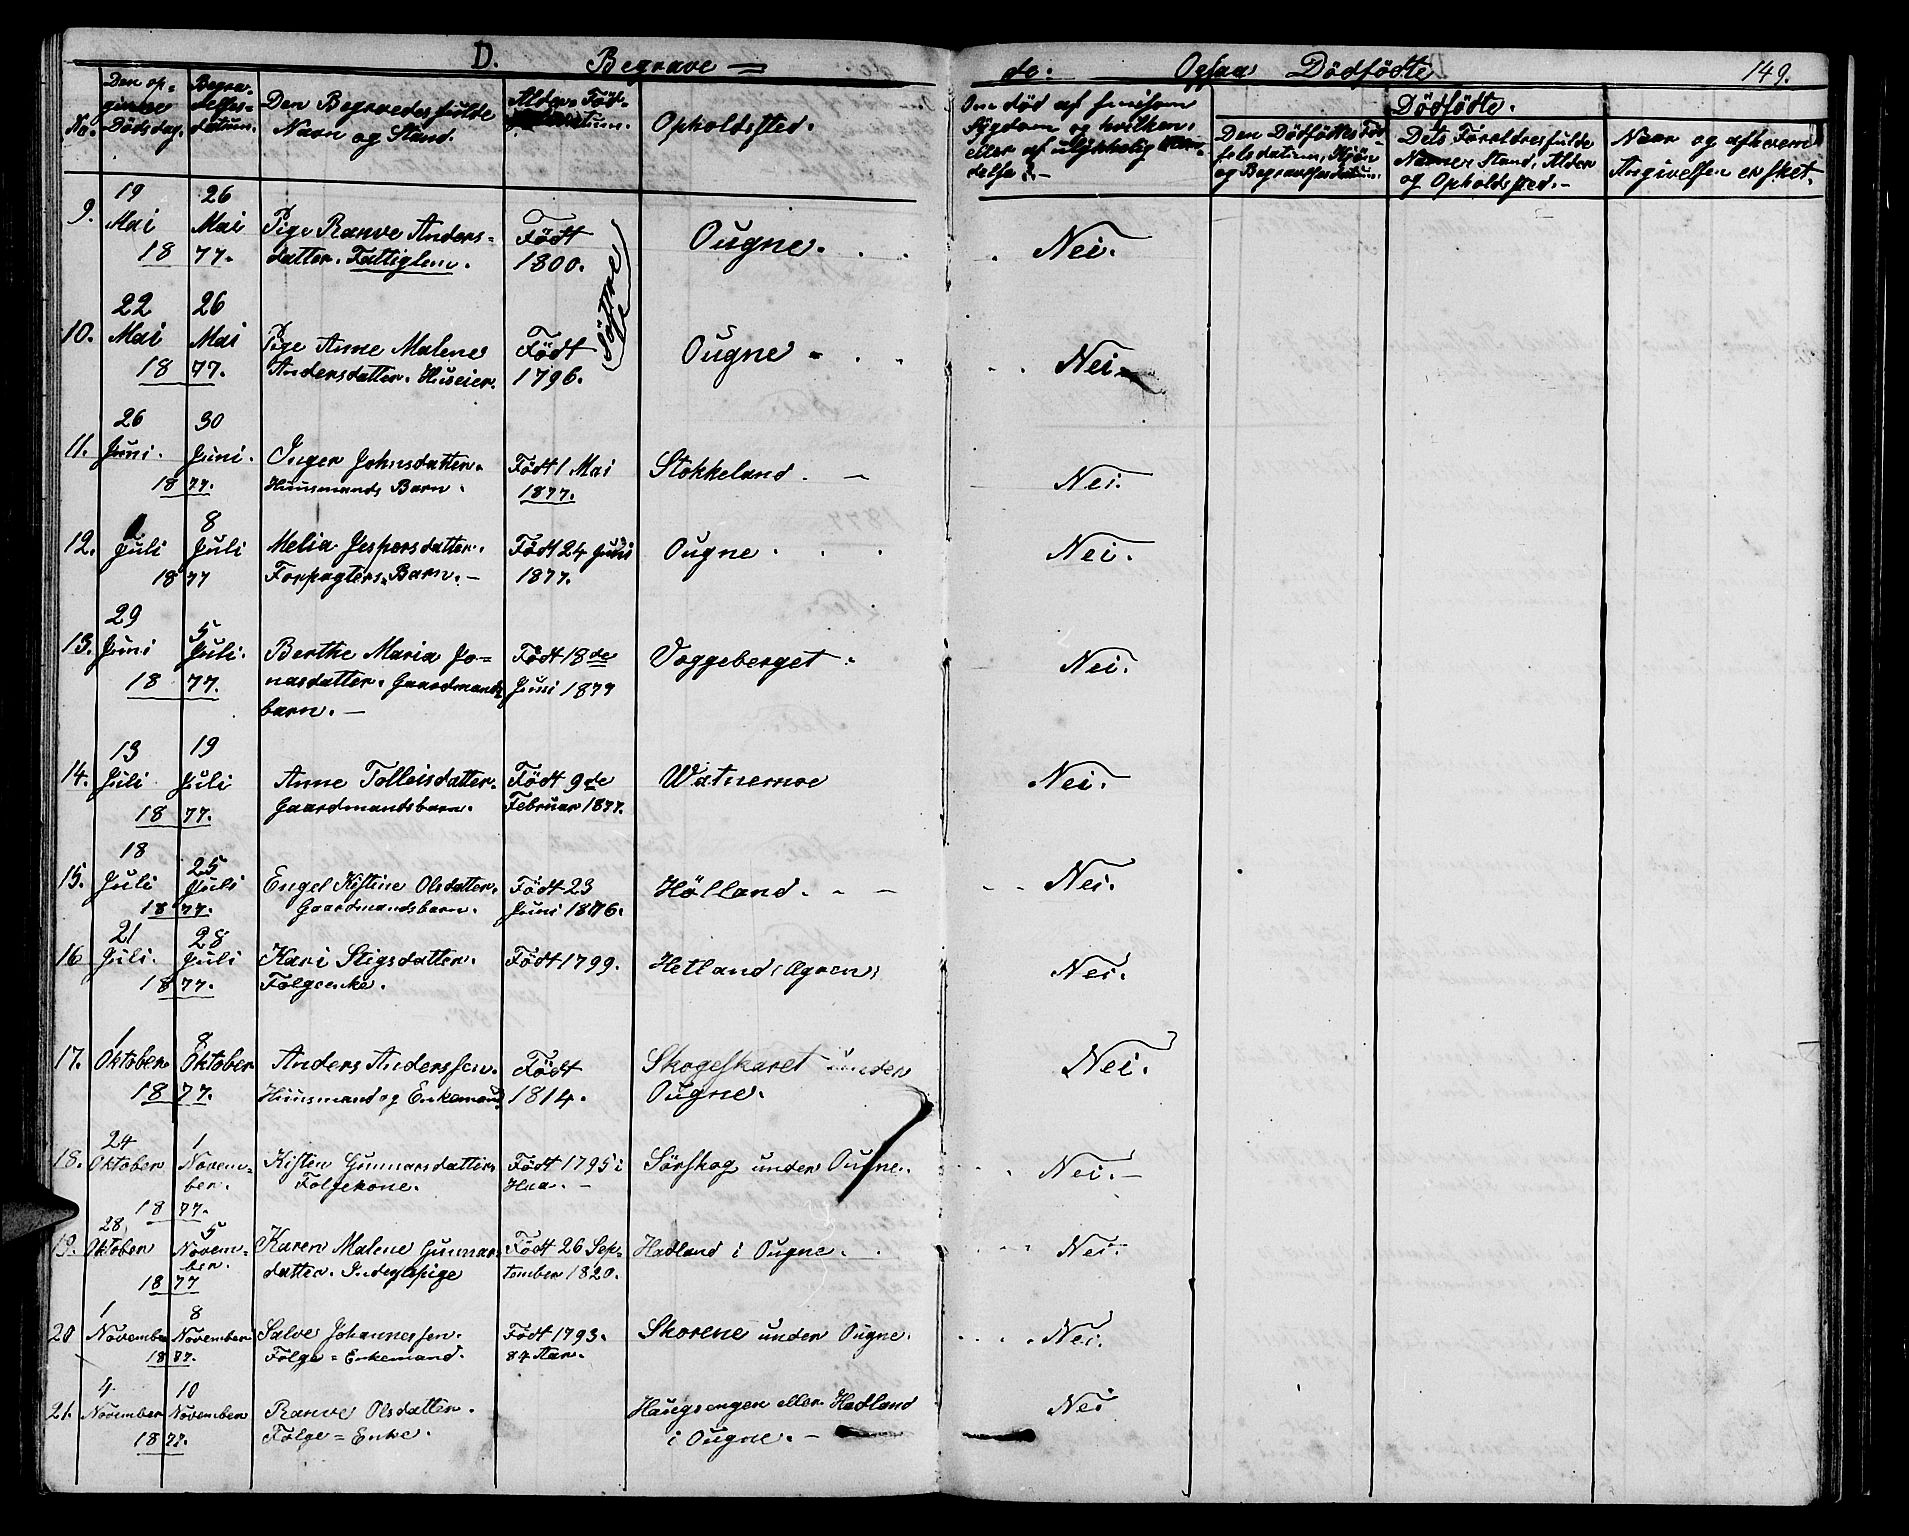 D. Begrave=
de: Ogsaa Dödfödte 149.
No.
Den op-
givne
Dödsdag.
Begra-
velses-
datum.
Den Begravedes fulde
Navn og Stand.
Alder. Föd-
datum.
Opholdssted.
Om död af smitsom
Sygdom og hvilken,
eller af ulykkelig Hæn-
delse.-
Dödfödte.
Den Dödfödtes Föd-
selsdatum, Kjön
og Begravelsesdatum.
Dets Forældres fulde
Navne, Stand, Alder
og Opholdssted.-
Naar og af hvem
Angivelsen er sket.
9. 19 Mai 26 Mai 1877. Pige Ranve Anders=
datter. Fattiglem. Födt
1800. Ougne. Nei.
(Söstre)
10. 22 Mai 26 Mai 1877. Pige Anne Malene
Andersdatter. Huseier. Födt
1796. Ougne Nei.
11. 26 Juni. 30 Juni. 1877. Inger Johnsdatter.
Huusmands Barn. Födt 1 Mai
1877. Stokkeland. Nei.
12. Juli 8 Juli 1877 Melia Jespersdatter.
Forpagters Barn.- Födt 24 Juni
1877. Ougne. Nei.
13. 29 Juni 5 Juli. 1877. Berthe Maria Jo=
nasdatter. Gaardmands
barn.- Födt 18de
Juni 1877 Voggeberget. Nei.
14. 13 Juli 19 Juli 1877. Anne Tolleisdatter.
Gaardmandsbarn. Födt 9de
Februar 1877. Watnemoe Nei.
15. 18 Juli 25 Juli 1877. Engel Kistine Olsdatter.
Gaardmandsbarn. Födt 23
Juni 1876. Hölland. Nei.
16 21 Juli. 28 Juli 1877. Kari Stigsdatter.
Folgeenke. Födt 1799. Hetland Nei.
17. 1 Oktober 8 Oktober 1877. Anders Anderssen.
Huusmand og Enkemand Födt
1814. Skogeskaret under
Ougne. Nei.
18. 24 Oktober 1 Novem-
ber. 1877. Kisten Gunnarsdatter
Folgekone. Födt 1795 i
Sörskog under Ougne. Nei.-
19. 28 Oktober 5 Novem-
ber. 1877 Karen Malene Gunnars
datter. Inderstpige Födt 26 Sep-
tember 1820. Hadland i Ougne. Nei.
20 1 November 8 November 1877. Salve Johannessen.
Folge=Enkemand. Födt 1793.
84 Aar. Skorene under Ougne. Nei.
21. 4 November 10 November 1877. Ranve Olsdatter.
Folge=Enke. Haugsengen eller Hadland
i Ougne.- Nei